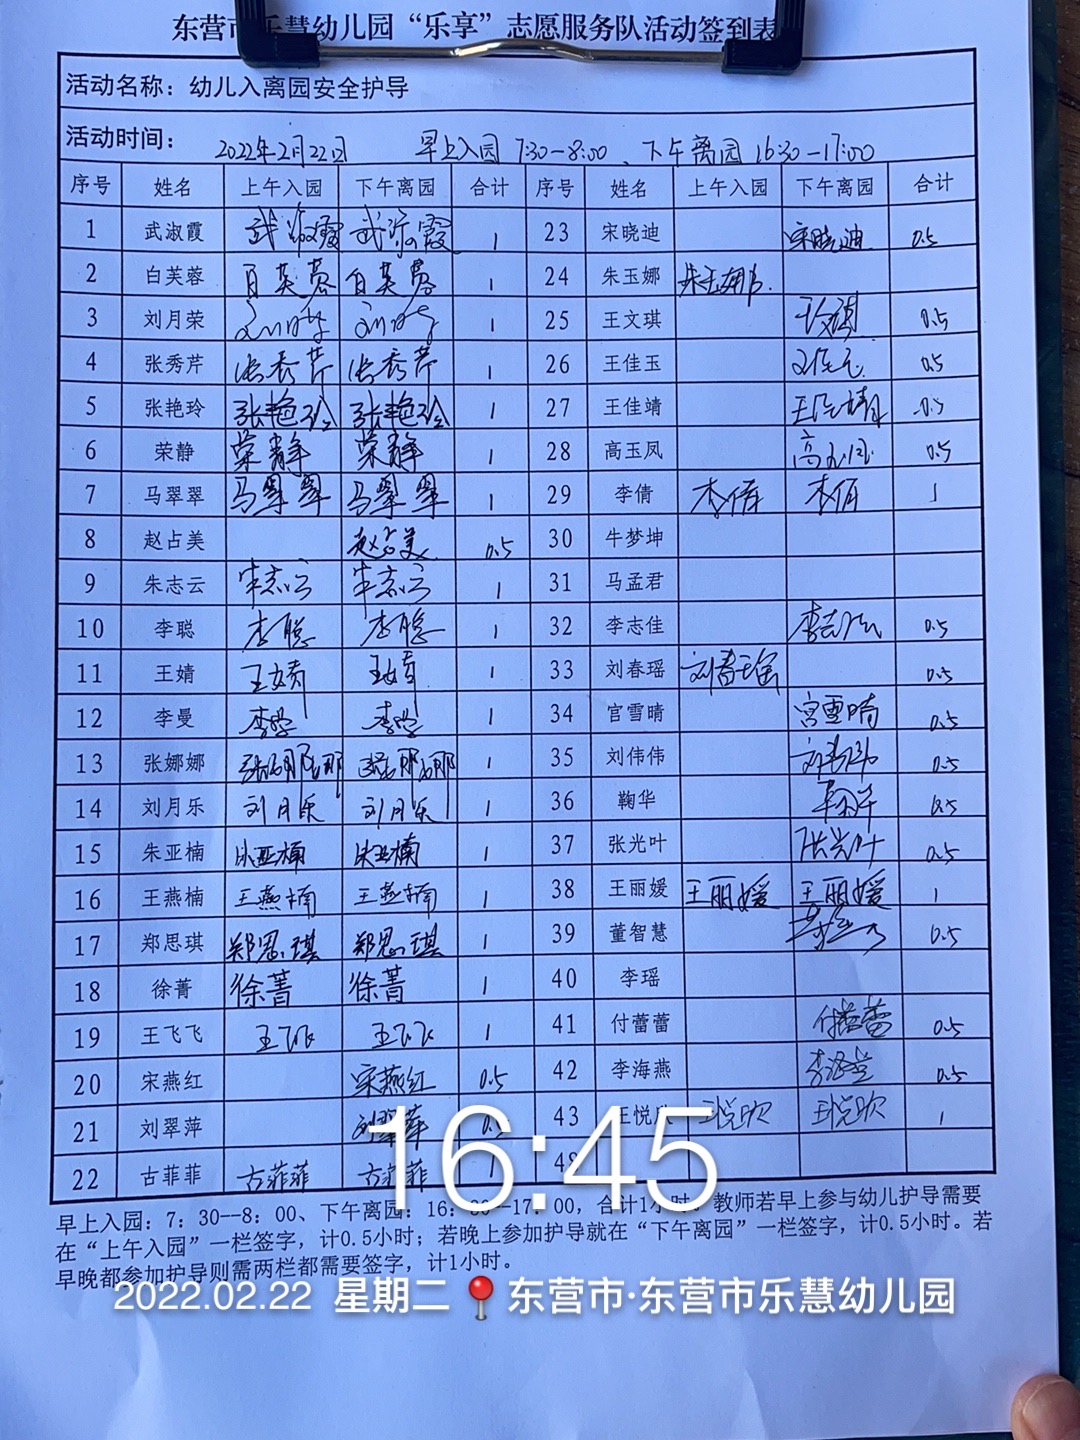 东营市乐慧幼儿园“乐享”志愿服务队活动签到表
活动名称：幼儿入离园安全护导
活动时间： 2022年2月22日 早上入园 7:30-8:00、下午离园 16:30-17:00
序号 姓名 上午入园 下午离园 合计 序号 姓名 上午入园 下午离园 合计
1 武淑霞 武淑霞 武淑霞 1 23 宋晓迪 宋晓迪 0.5
2 白芙蓉 白芙蓉 白芙蓉 1 24 朱玉娜 朱玉娜
3 刘月荣 刘月荣 刘月荣 1 25 王文琪 王文琪 0.5
4 张秀芹 张秀芹 张秀芹 1 26 王佳玉 王佳玉 0.5
5 张艳玲 张艳玲 张艳玲 1 27 王佳靖 王佳靖 0.5
6 荣静 荣静 荣静 1 28 高玉凤 高玉凤 0.5
7 马翠翠 马翠翠 马翠翠 1 29 李倩 李倩 李倩 1
8 赵占美 赵占美 0.5 30 牛梦坤
9 朱志云 朱志云 朱志云 1 31 马孟君
10 李聪 李聪 李聪 1 32 李志佳 李志佳 0.5
11 王婧 王婧 王婧 1 33 刘春瑶 刘春瑶 0.5
12 李曼 李曼 李曼 1 34 官雪晴 官雪晴 0.5
13 张娜娜 张娜娜 张娜娜 1 35 刘伟伟 刘伟伟 0.5
14 刘月乐 刘月乐 刘月乐 1 36 鞠华 鞠华 0.5
15 朱亚楠 朱亚楠 朱亚楠 1 37 张光叶 张光叶 0.5
16 王燕楠 王燕楠 王燕楠 1 38 王丽媛 王丽媛 王丽媛 1
17 郑思琪 郑思琪 郑思琪 1 39 董智慧 0.5
18 徐菁 徐菁 徐菁 1 40 李瑶
19 王飞飞 王飞飞 王飞飞 1 41 付蕾蕾 付蕾蕾 0.5
20 宋燕红 宋燕红 0.5 42 李海燕 李海燕 0.5
21 刘翠萍 刘翠萍 43 王悦欣 王悦欣 王悦欣 1
22 古菲菲 古菲菲 古菲菲 1
16:45
早上入园：7：30--8：00、下午离园：16：30--17：00，合计1小时。教师若早上参与幼儿护导需要
在“上午入园”一栏签字，计0.5小时；若晚上参加护导就在“下午离园”一栏签字，计0.5小时。若
早晚都参加护导则需两栏都需要签字，计1小时。
2022.02.22 星期二 东营市·东营市乐慧幼儿园